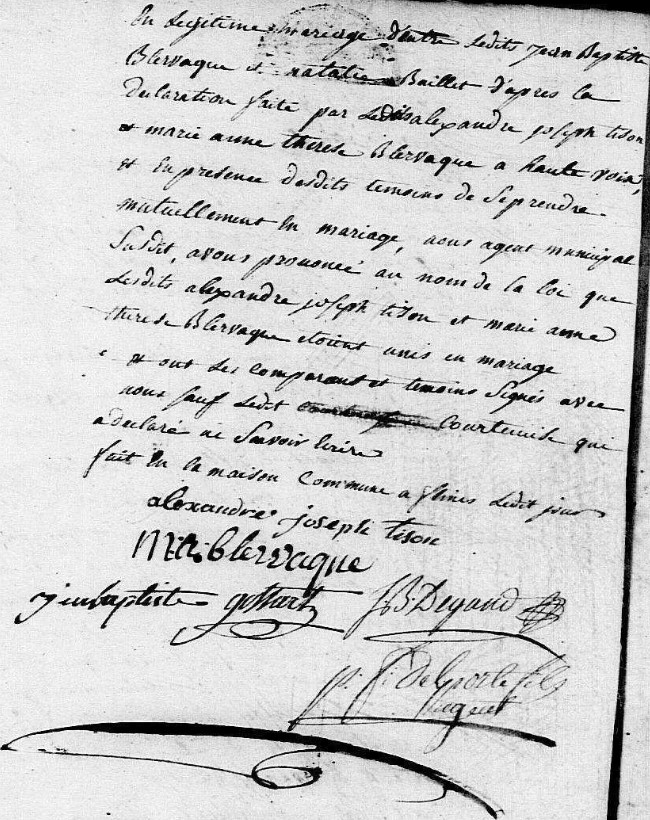 En Legitime mariage d'entre Ledits Jean Baptiste
Blervaque et natalie Baillet d'apres la
declaration faite par Lesdits alexandre joseph tison
et marie anne therese Blervaque a haute voix,
et En presence desdits temoins de Se prendre
mutuellement En mariage, nous agent municipal
Susdit, avons prononcé au nom de la loi que
Lesdits alexandre joseph tison et marie anne
therese Blervaque etoient unis en mariage
et ont Les comparant et temoins Signés avec
nous Sauf Ledit Courtecuise qui
a declaré ne Savoir Ecrire
fait En la maison Commune a flines Ledit jour
alexandre joseph tison
M:A: blervaque
jeanbaptiste gossart J B: Degand
p. j. Delporte fils
agent